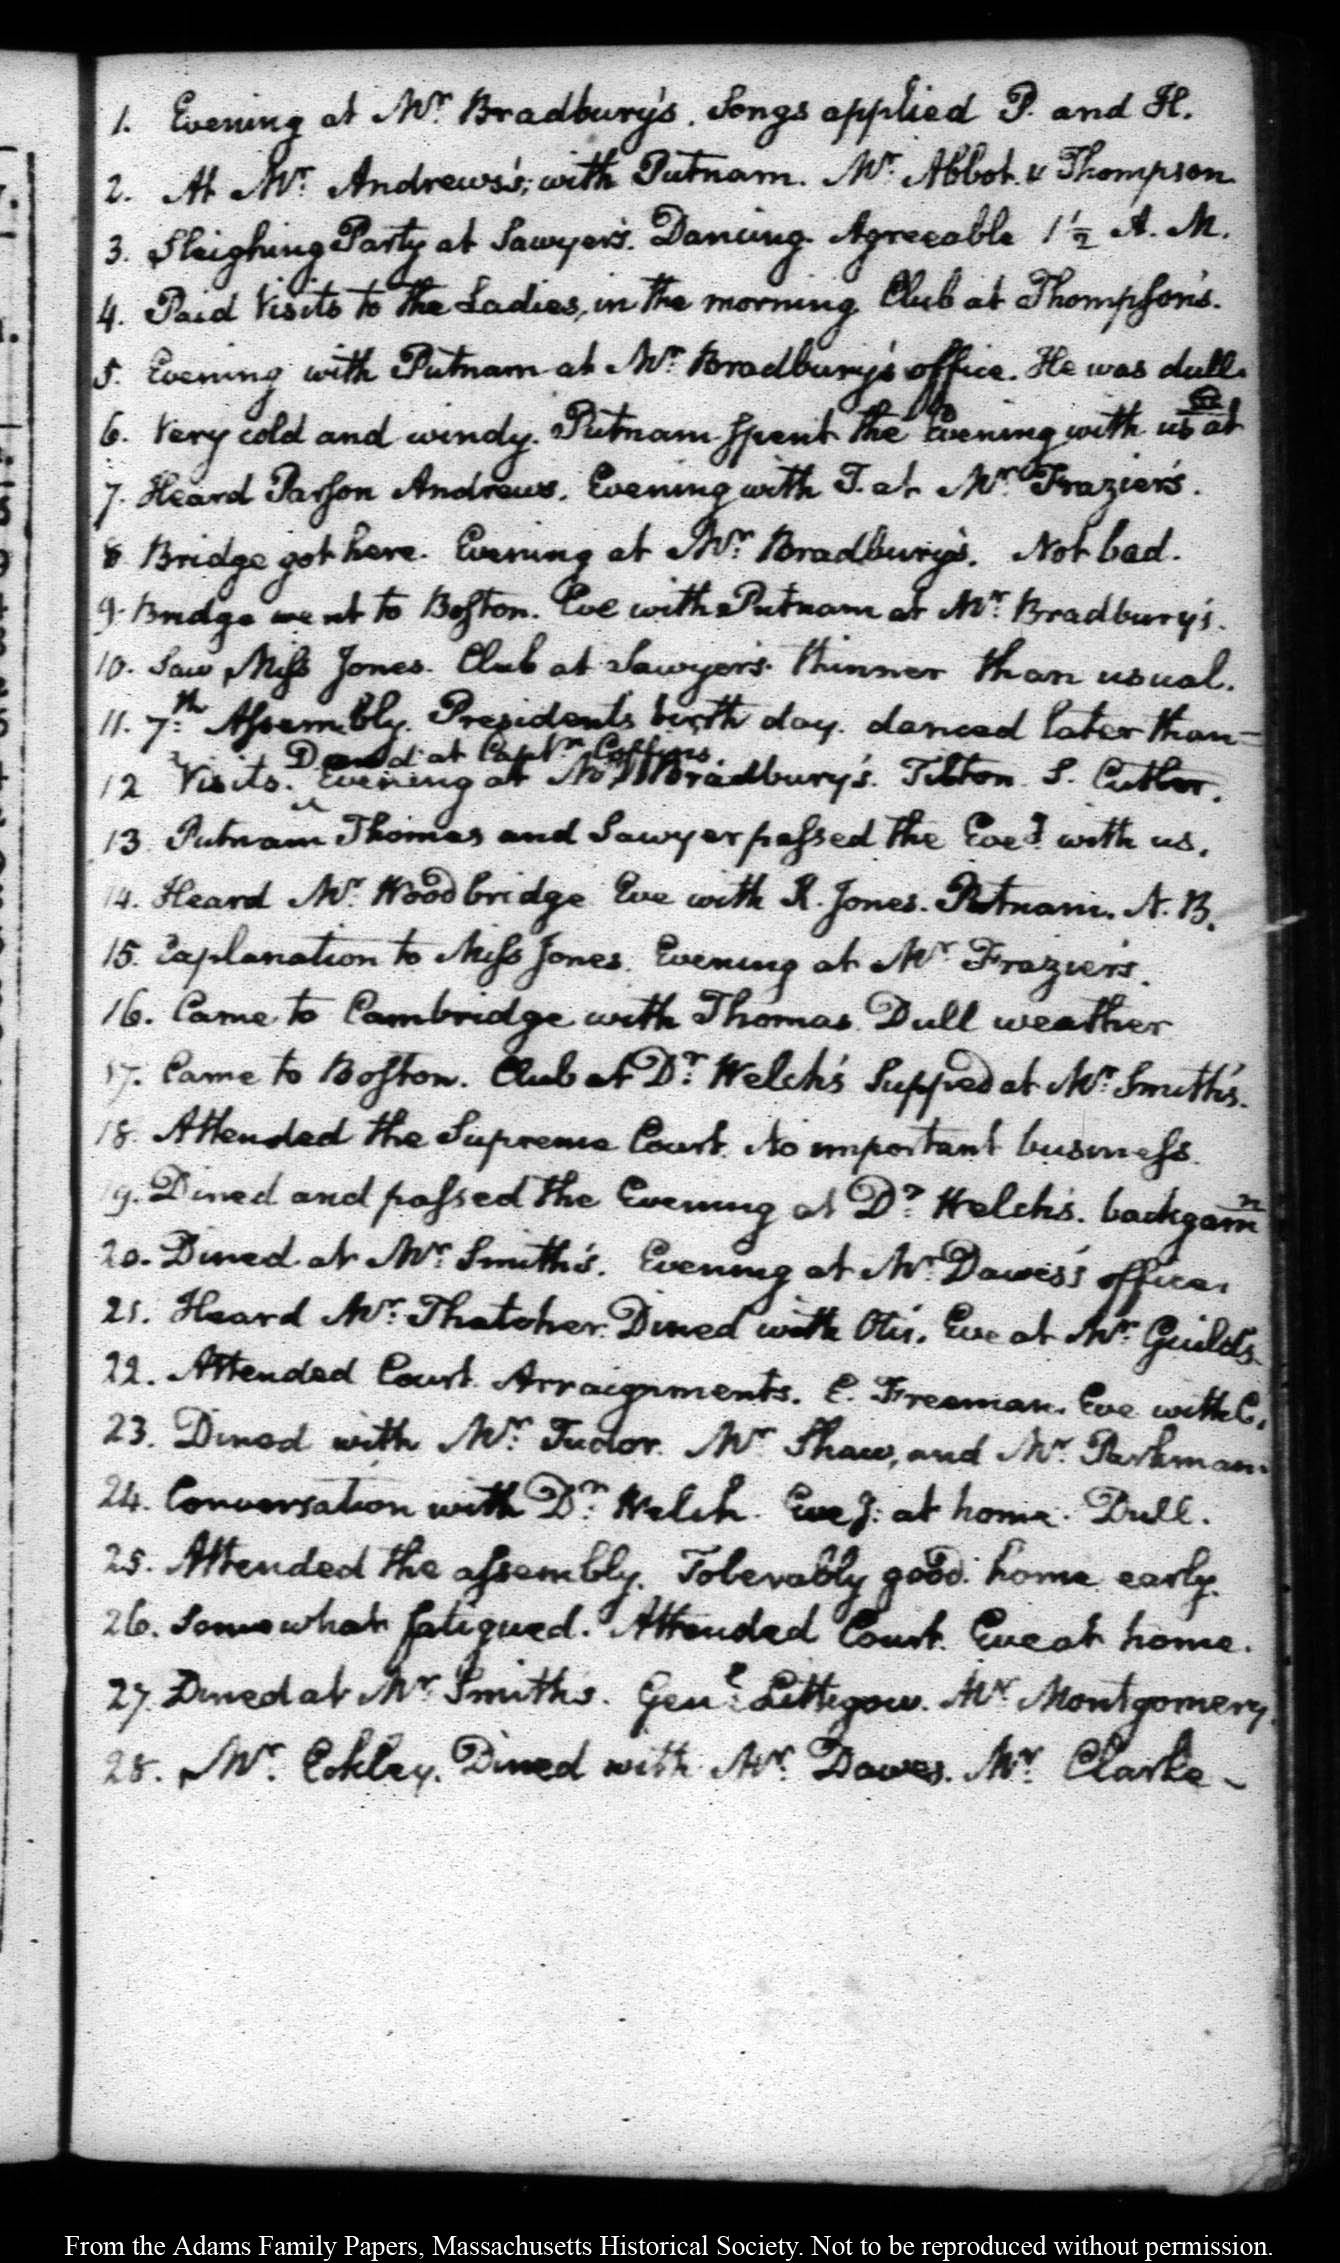 1. Evening at Mr. Bradbury's. Songs applied P. and H.
2. At Mr. Andrews's; with Putnam. Mr. Abbot. & Thompson.
3. Sleighing Party at Sawyer's. Dancing. Agreeable 1 1/2 A. M.
4. Paid Visits to the Ladies, in the morning Club at Thompson's.
5. Evening with Putnam at Mr. Bradbury's office. He was dull.
6. Very cold and windy. Putnam spent the Evening with us at
7. Heard Parson Andrews. Evening with T. at Mr. Frazier's.
8 Bridge got here. Evening at Mr. Bradbury's. Not bad.
9. Bridge went to Boston. Eve with Putnam at Mr. Bradbury's.
10. Saw Miss Jones. Club at Sawyer's thinner than usual.
11. 7:th Assembly. Presidents birth day. danced later than
Dined at Captn. Coffins
12 Visits. ^ Evening at Mr. Bradbury's. Tilton. S. Cutler.
13 Putnam Thomas and Sawyer passed the Eveg. with us.
14. Heard Mr. Woodbridge Eve with R. Jones. Putnam. N. B.
15. Explanation to Miss Jones. Evening at Mr. Frazier's.
16. Came to Cambridge with Thomas Dull weather
17. Came to Boston. Club at Dr. Welch's Supped at Mr. Smith's.
18. Attended the Supreme Court. No important business.
19. Dined and passed the Evening at Dr. Welch's. backgamn
20. Dined at Mr. Smith's. Evening at Mr. Dawes's office.
21. Heard Mr. Thatcher. Dined with Otis. Eve at Mr. Guild's.
22. Attended Court. Arraignments. E. Freeman. Eve with C.
23. Dined with Mr. Tudor. Mr. Shaw, and Mr. Parkman.
24. Conversation with Dr. Welch. Eveg: at home. Dull.
25. Attended the assembly. Tolerably good. home early.
26. Somewhat fatigued. Attended Court. Eve at home.
27. Dined at Mr. Smiths. Genl: Littlegow. Mr. Montgomery.
28. Mr. Eckley. Dined with Mr. Dawes. Mr. Clarke
From the Adams Family Papers, Massachusetts Historical Society. Not to be reproduced without permission.